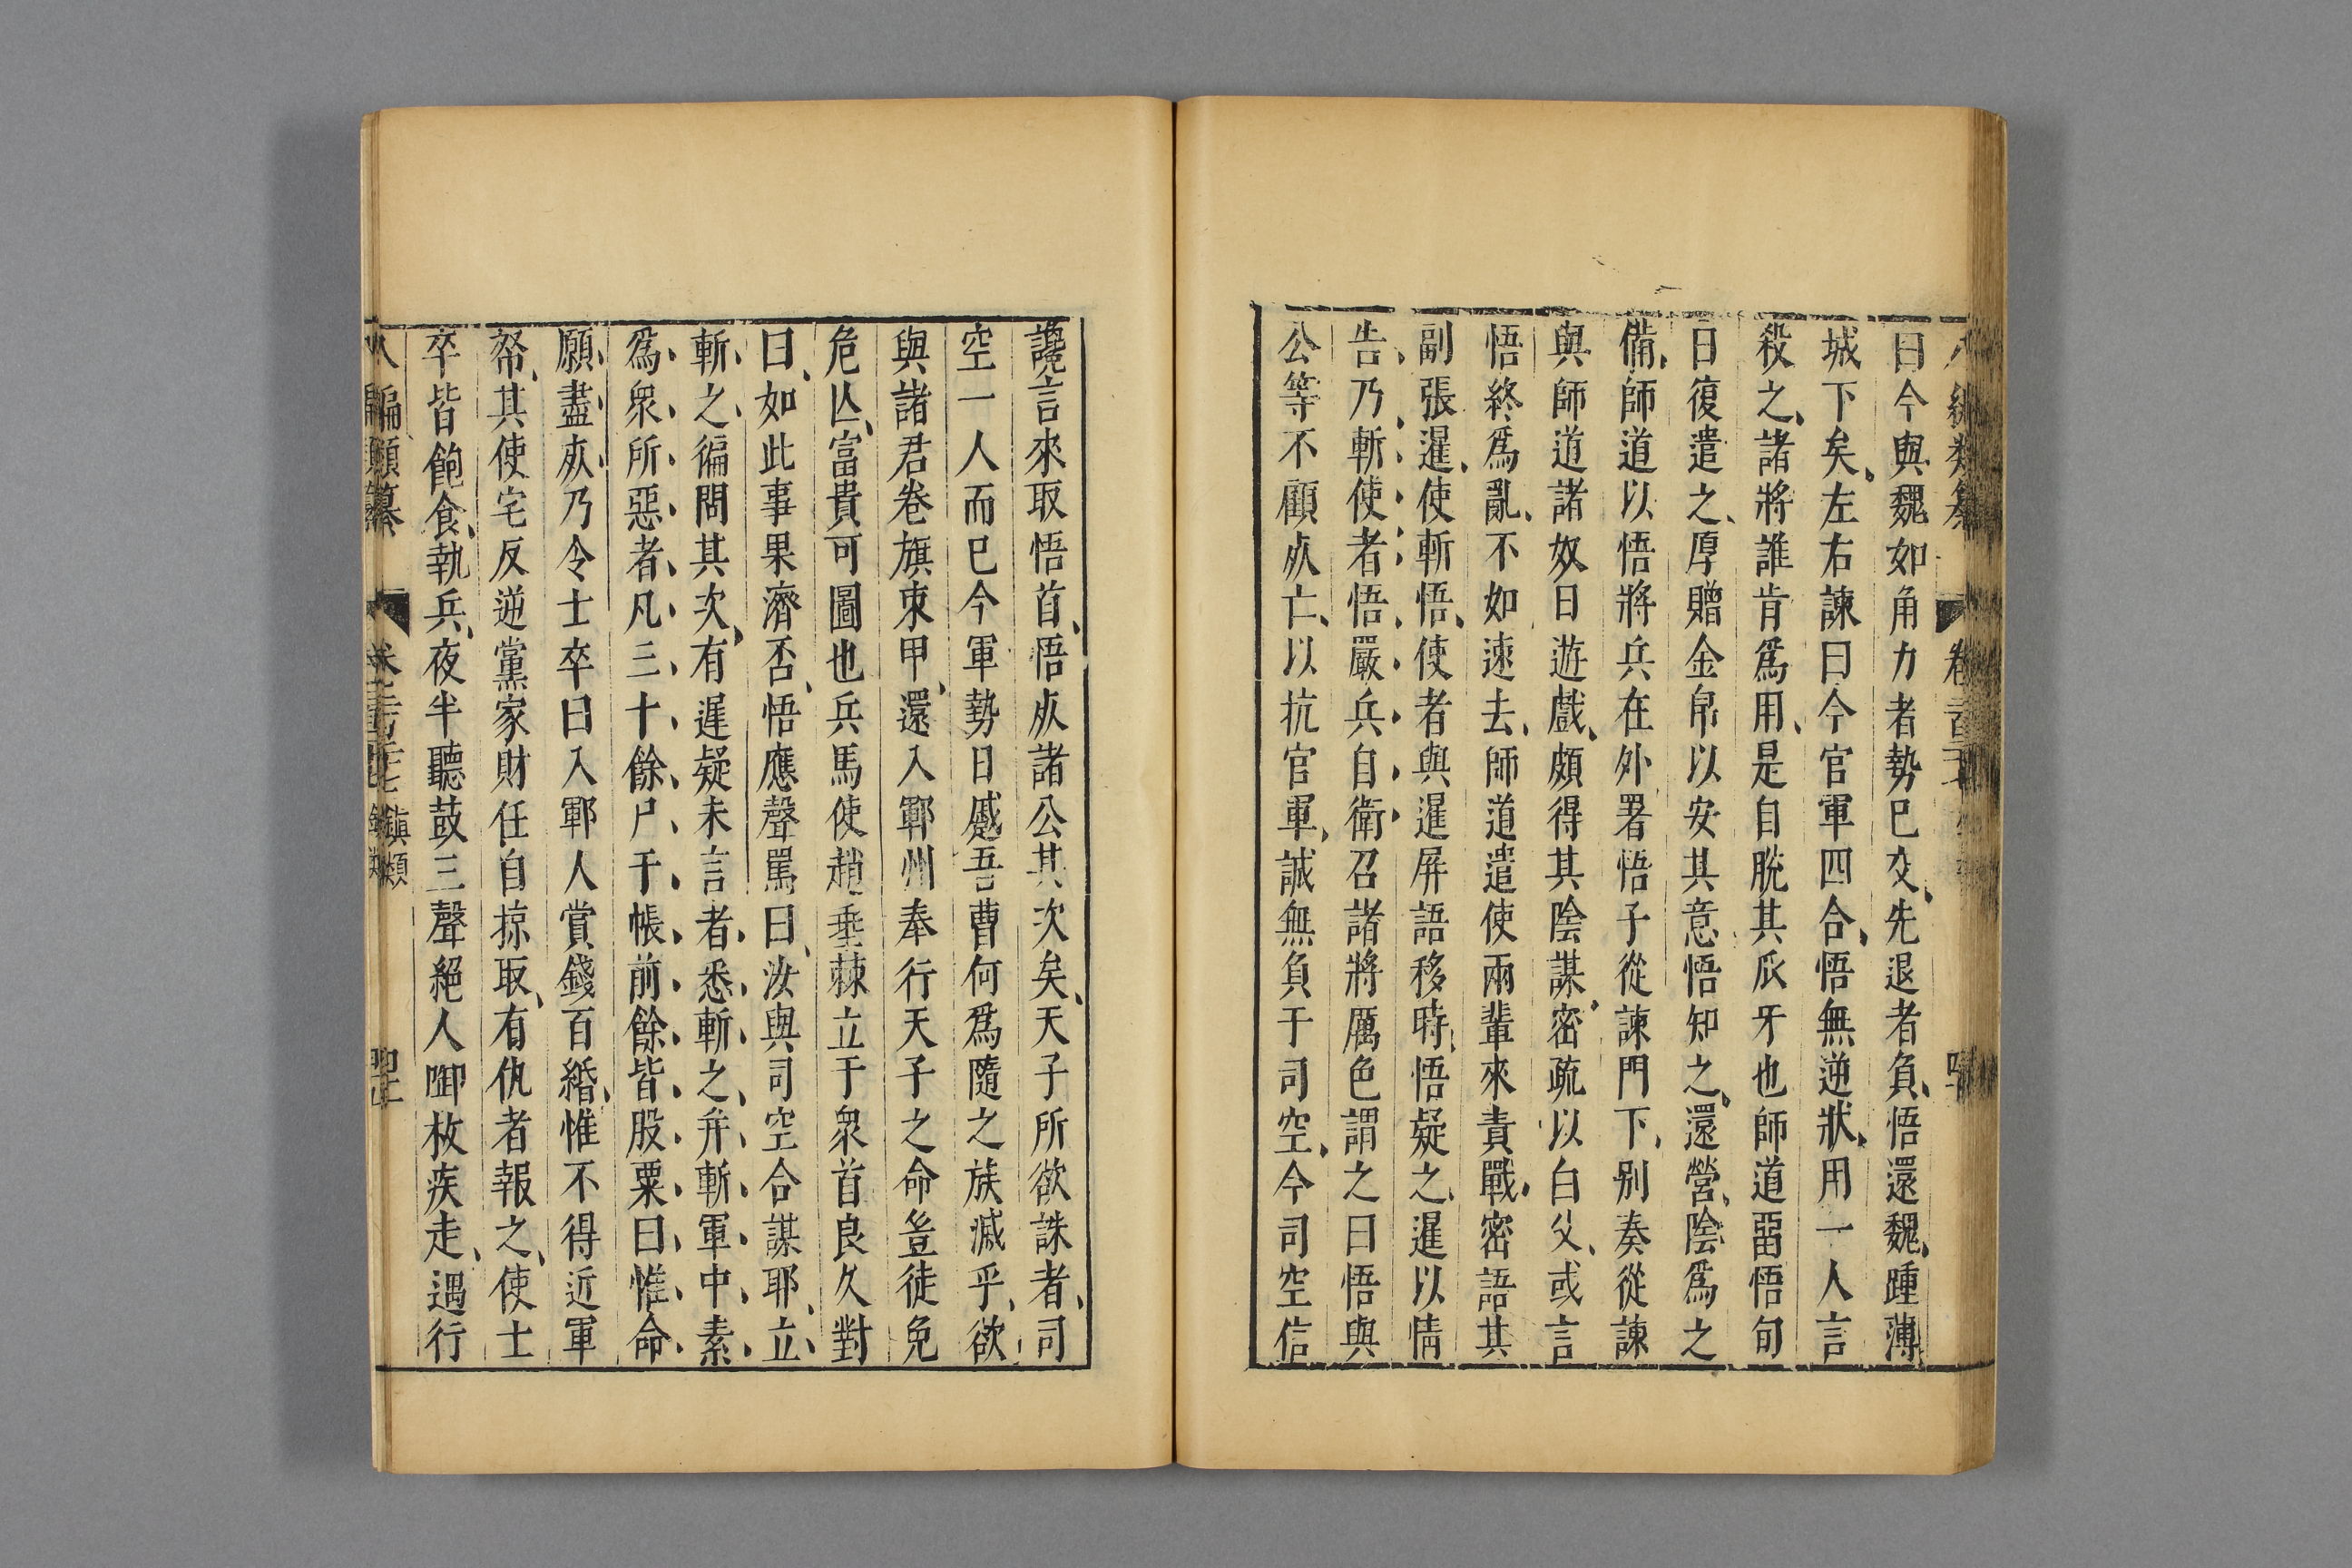 曰今與魏如角力者勢已交先退者負悟還魏踵薄
城下矣左右諫曰今官軍四合悟無逆狀用一人言
殺之諸將誰肯爲用是自脫其爪牙也師道畱悟旬
日復遣之厚贈金帛以安其意悟知之還營陰爲之
備師道以悟將兵在外署悟子從諫門下別奏從諫
與師道諸奴日遊戲頗得其陰謀密疏以白父或言
悟終爲亂不如速去師道遣使兩輩來責戰密語其
副張暹使斬悟使者與暹屏語移時悟疑之暹以情
告乃斬使者悟嚴兵自衛召諸將厲色謂之曰悟與
公等不顧㱙亡以抗官軍誠無負于司空今司空信
讒言來取悟首悟㱙諸公其次矣天子所欲誅者司
空一人而已今軍勢日蹙吾曹何爲隨之族滅乎欲
與諸君卷旗束甲還入鄆州奉行天子之命豈徒免
危亾富貴可圖也兵馬使趙垂棘立于衆首良久對
曰如此事果濟否悟應聲罵曰汝與司空合謀耶立
斬之徧問其次有遲疑未言者悉斬之并斬軍中素
爲衆所惡者凡三十餘尸于帳前餘皆股栗曰惟命
願盡㱙乃令士卒曰入鄆人賞錢百緡惟不得近軍
帑其使宅反逆黨家財任自掠取有仇者報之使士
卒皆飽食執兵夜半聽鼓三聲絕人啣枚疾走遇行
八編類纂
鎮類